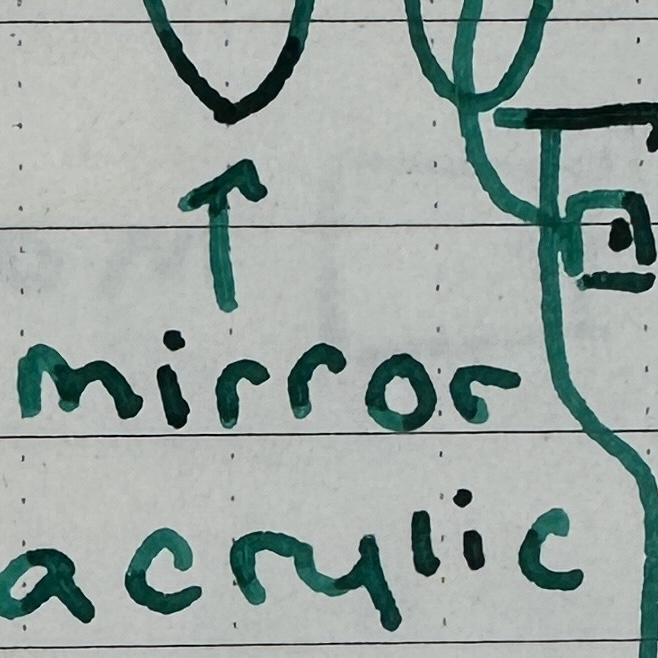 mirror
acrylic